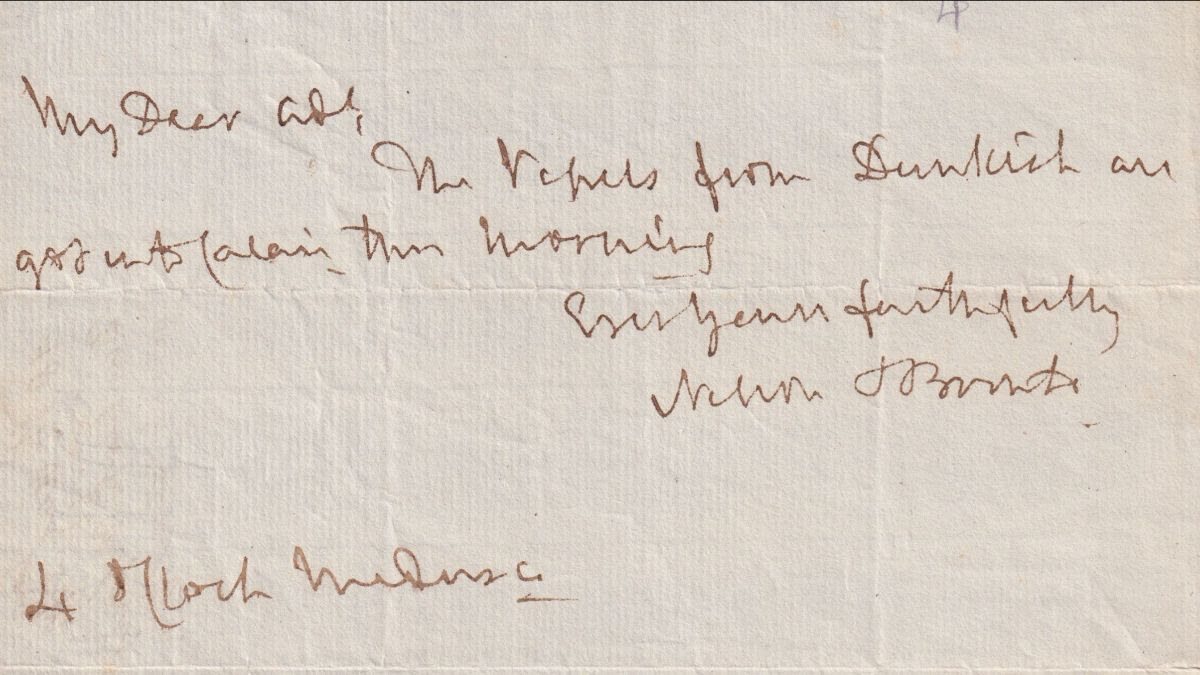 4
My Dear Adl,
The Vessels from Dunkirk are
got into Calais this Morning
Ever Yours faithfully
Nelson & Bronte
4 OClock Medusa